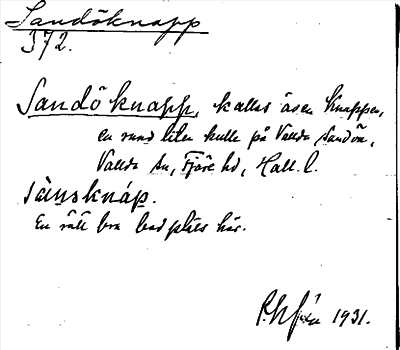 Sandöknapp
372.
Sandöknapp, kallas även Knappen,
en rund liten kulle på Vallda Sandö,
Vallda sn, Fjäre hd, Hall. l.
En rätt bra badplats här.
1931.